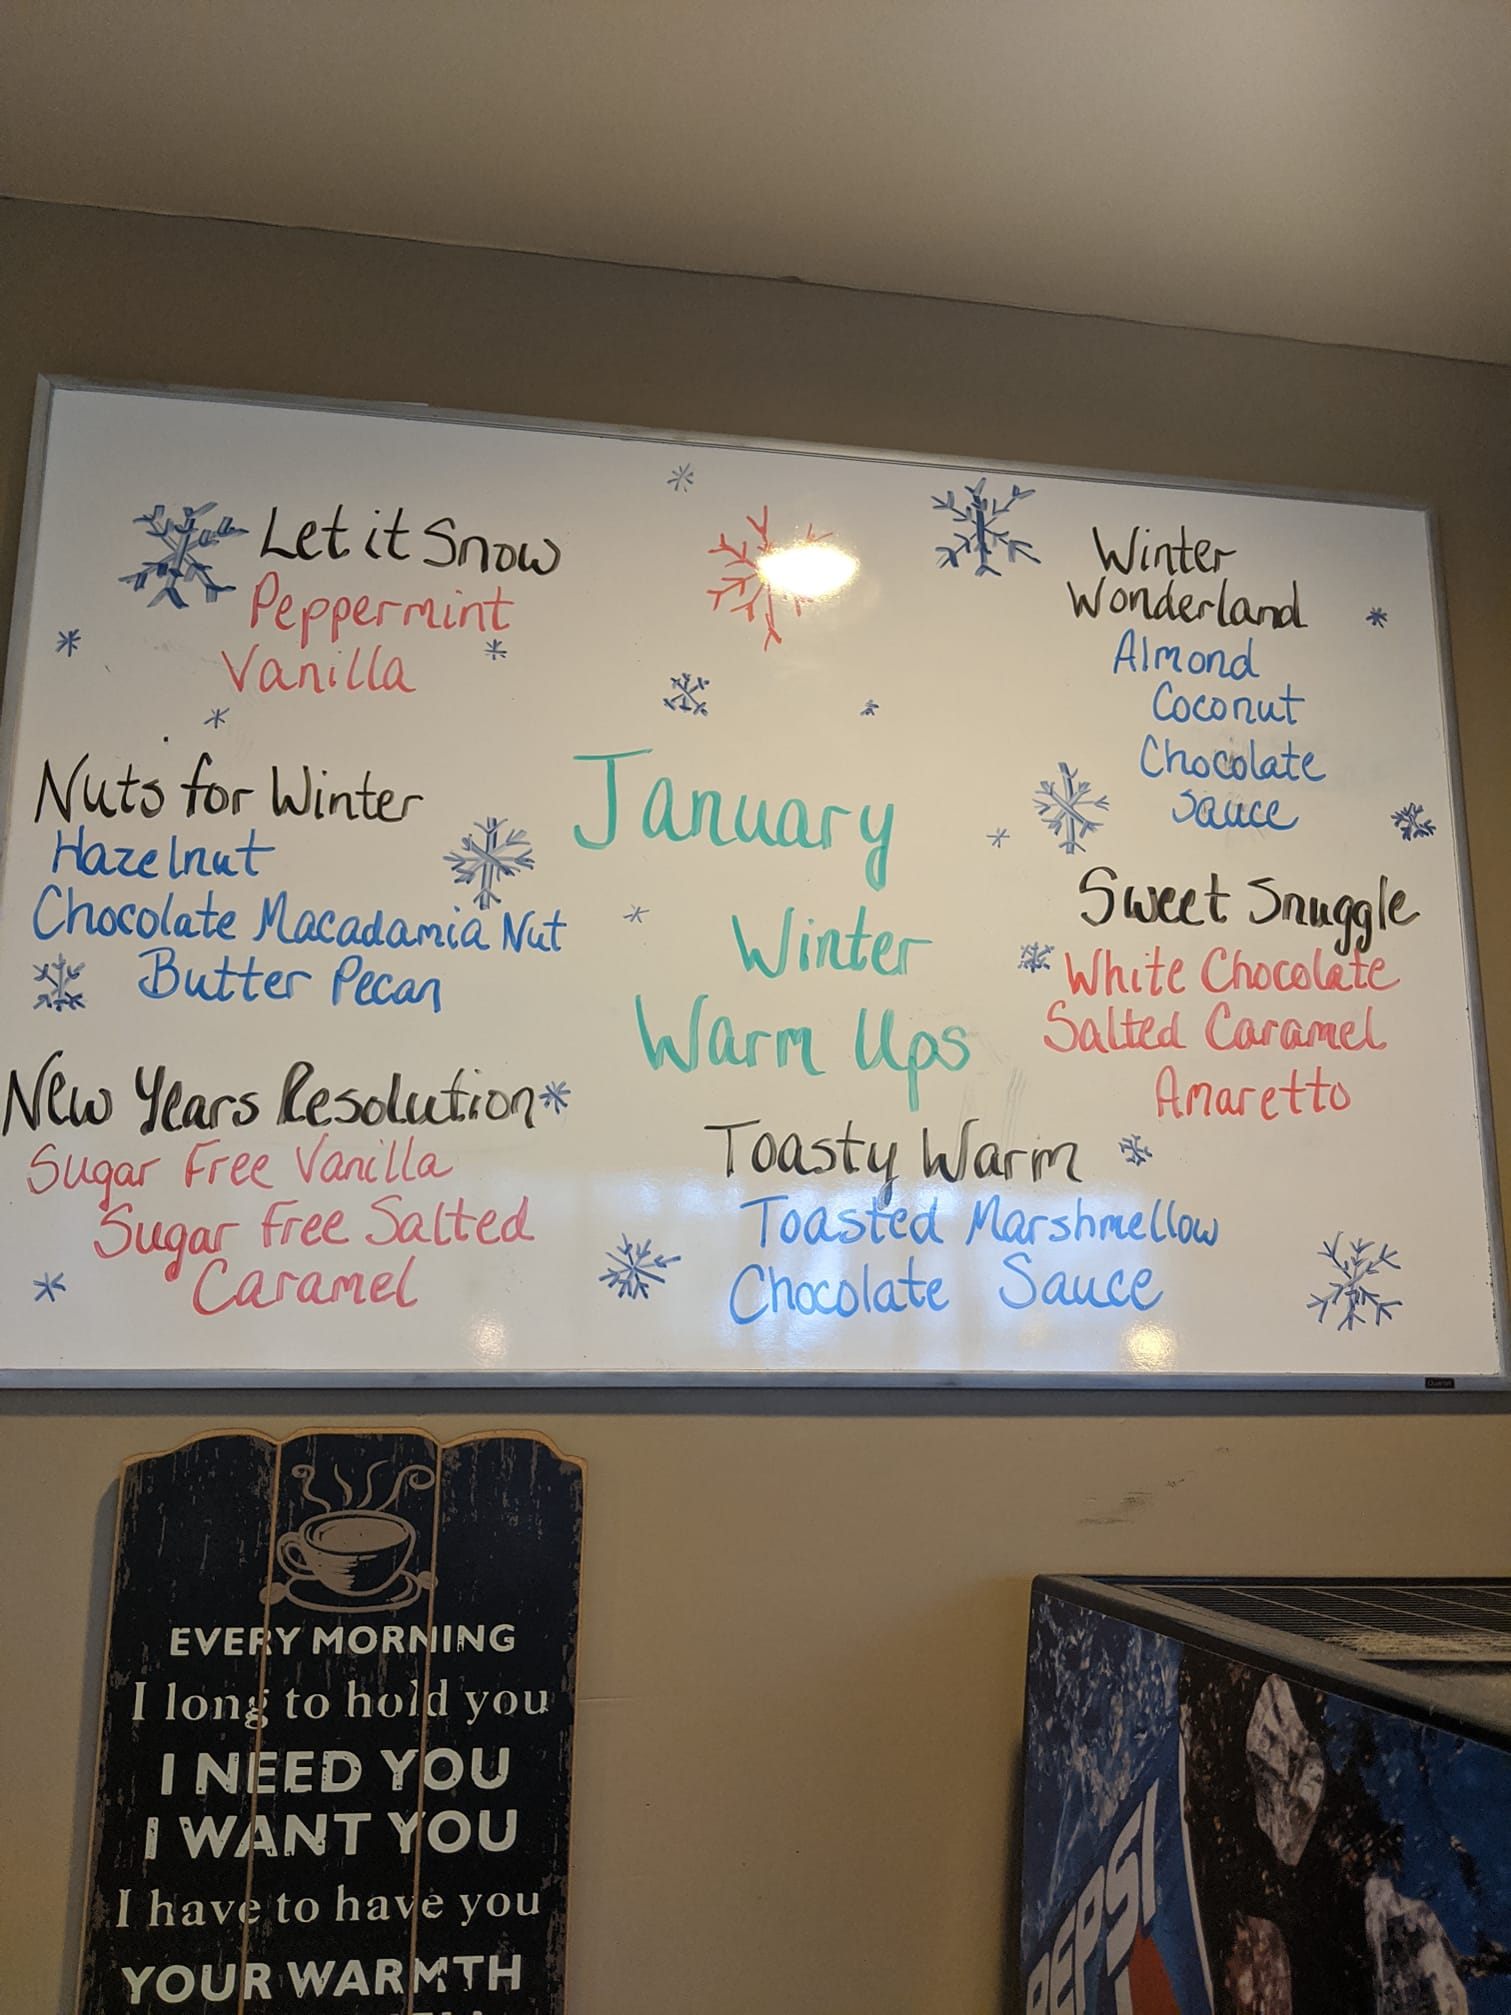 Let it Snow
Peppermint
Vanilla
Nuts for Winter
Hazelnut
Chocolate Macadamia Nut
Butter Pecan
New Years Resolution
Sugar Free Vanilla
Sugar Free Salted
Caramel
January
Winter
Warm Ups
Toasty Warm
Toasted Marshmellow
Chocolate Sauce
Winter
Wonderland
Almond
Coconut
Chocolate
Sauce
Sweet Snuggle
White Chocolate
Salted Caramel
Amaretto
EVERY MORNING
I long to hold you
I NEED YOU
I WANT YOU
I have to have you
YOUR WARMTH
PEPSI